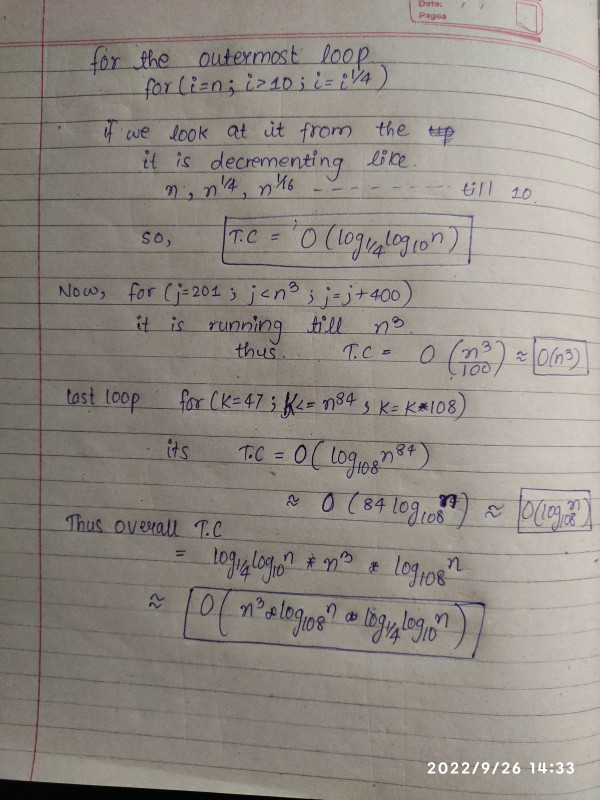 Date: / /
Pages
for the outermost loop
for (i=n ; i>10 ; i = i^1/4)
if we look at it from the
it is decrementing like.
n , n^1/4, n^1/16 - - - - - - - - - till 10.
so, T.C = O (log_1/4 log_10 n)
Now, for (j=201 ; j<n^3 ; j=j+400)
it is running till n^3.
thus. T.C = O (n^3/100) ≈ O(n^3)
last loop for (K=47 ; K<= n^84 ; K= K*108)
its T.C = O( log_108 n^84)
≈ O (84 log_108 n) ≈ O(log_108 n)
Thus overall T.C
= log_1/4 log_10 n * n^3 * log_108 n
≈ O( n^3 * log_108 n * log_1/4 log_10 n )
2022/9/26 14:33